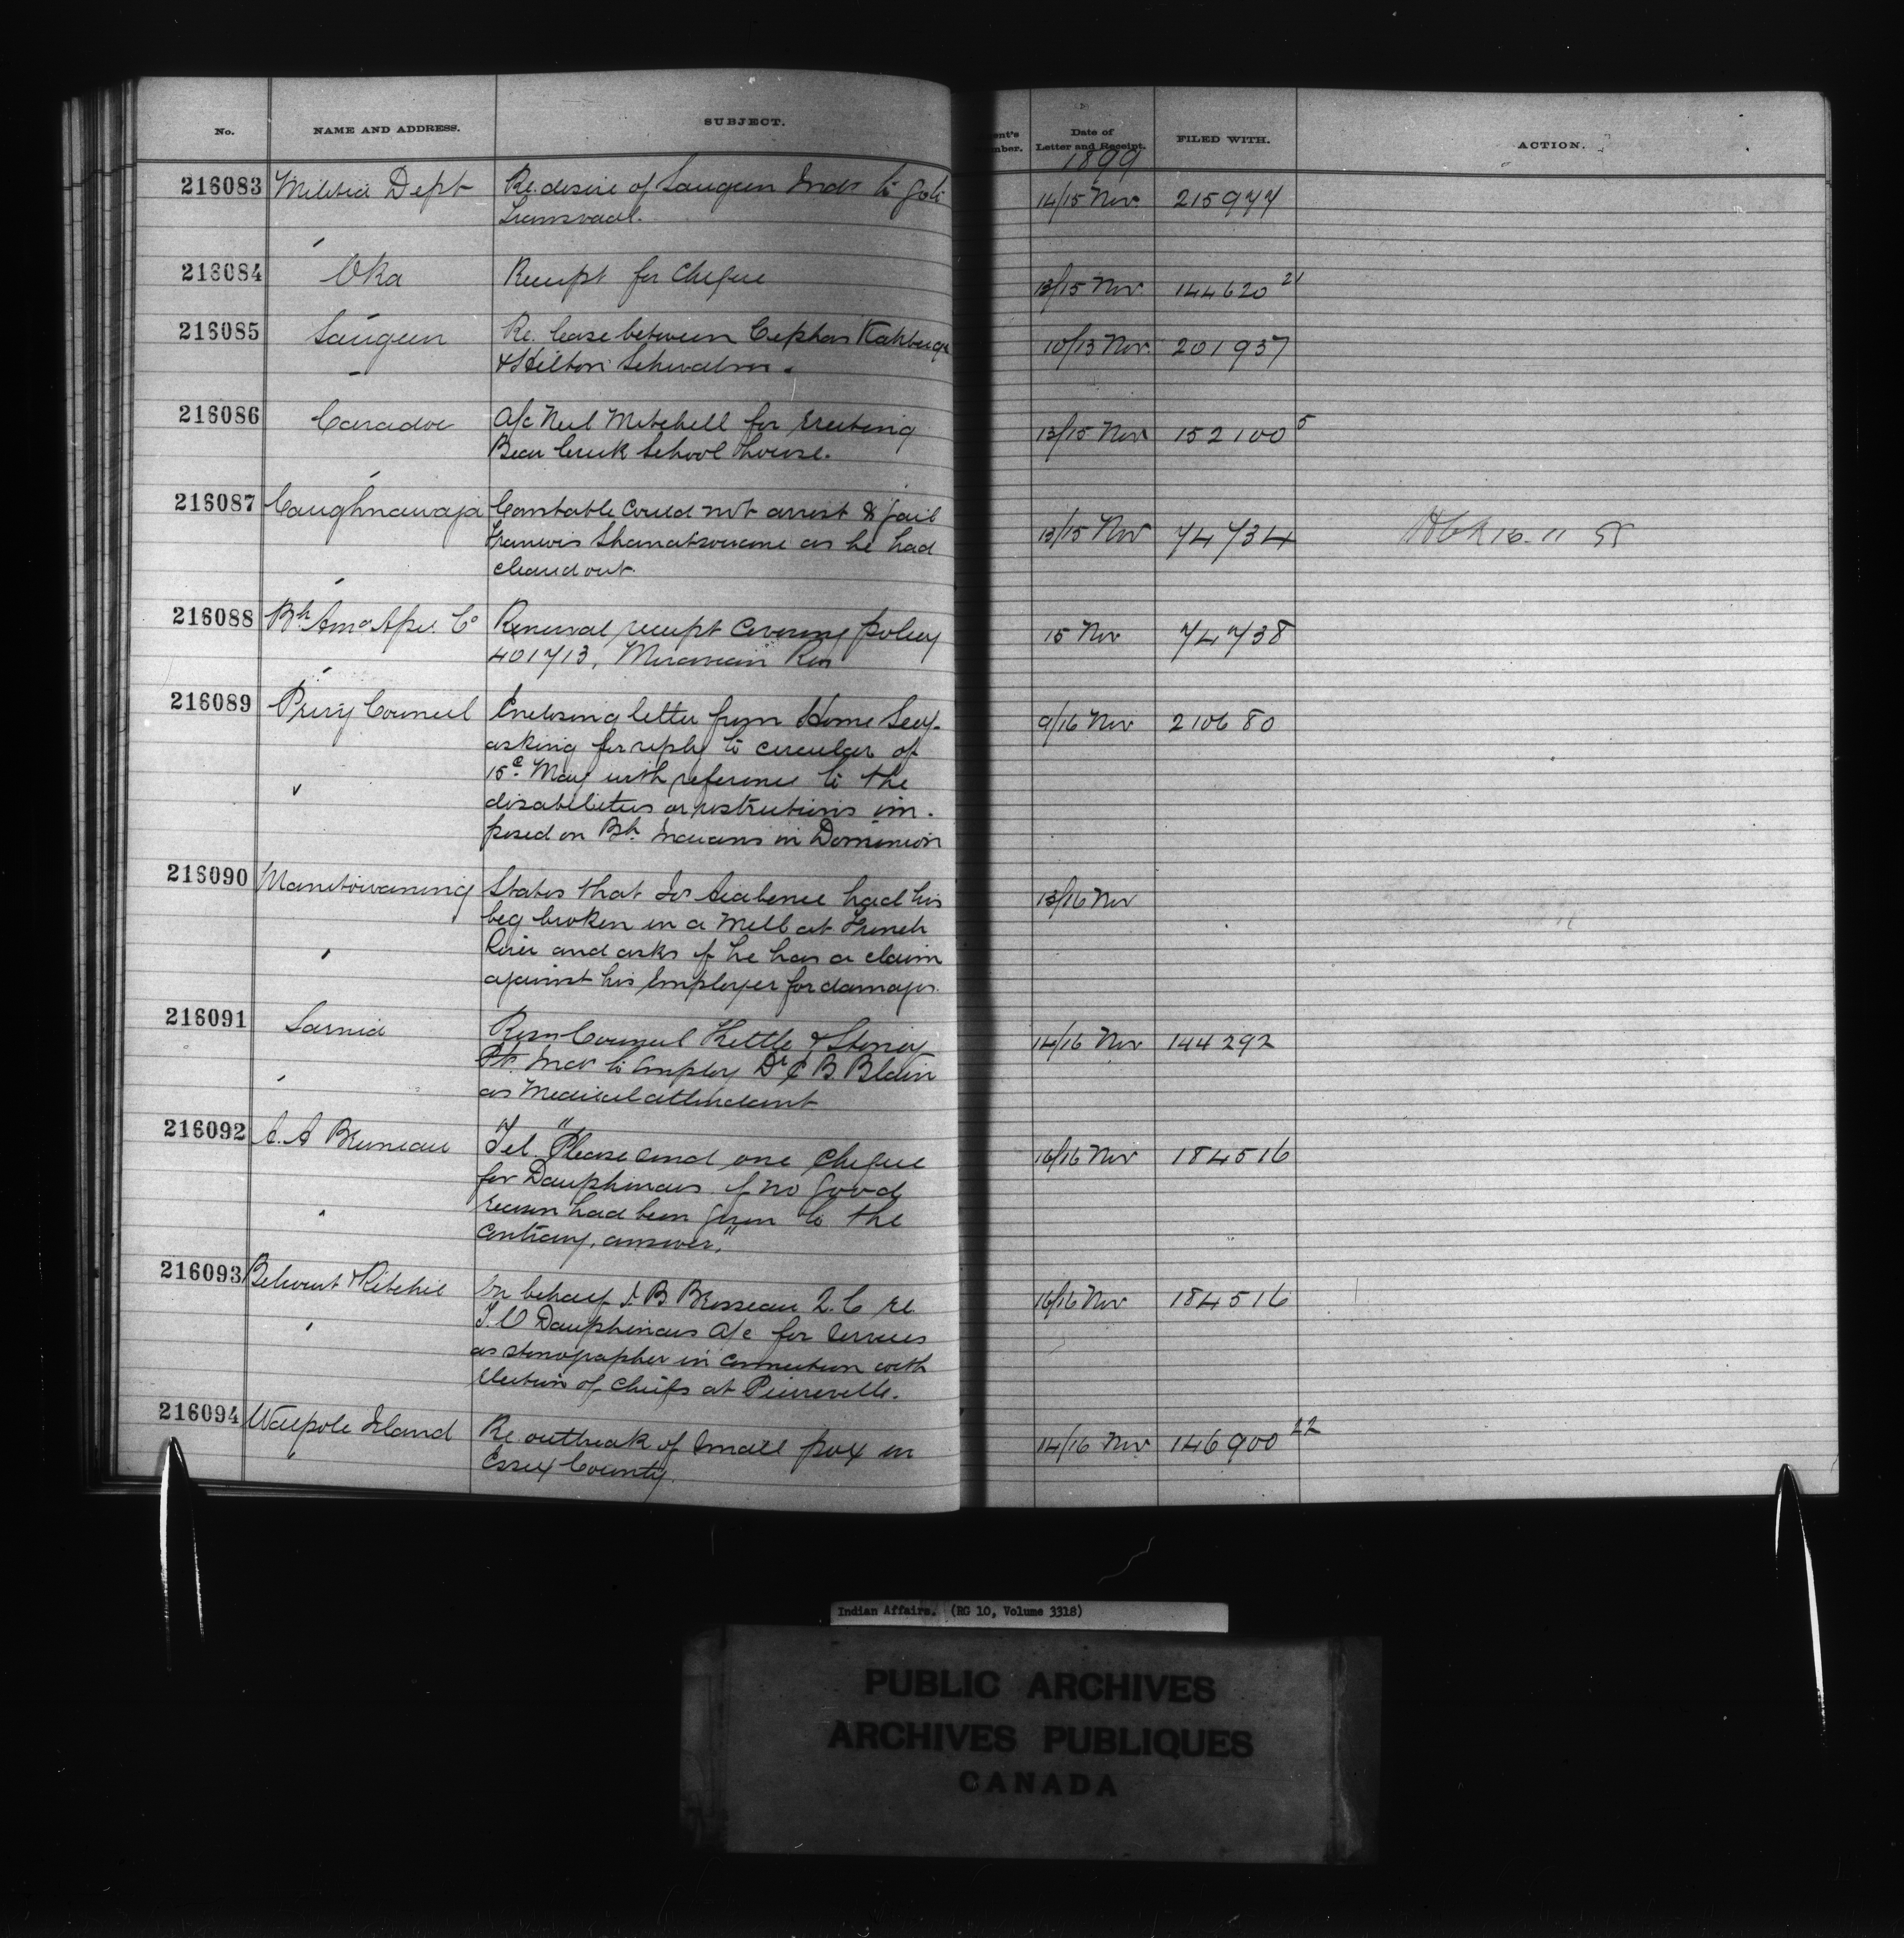 No.
NAME AND ADDRESS.
SUBJECT.
Date of
Letter and Receipt.
FILED WITH.
ACTION.
1899
216083 Militia Dept Re. desire of Saugeen Inds to go to 14/15 Nov. 215977
Transvaal.
216084 Oka Receipt for Cheque 13/15 Nov. 144620 21
216085 Saugeen Re. lease between Cephas Kahbeege 10/13 Nov. 201937
216086 Caradoc A/c Neil Mitchell for erecting 13/15 Nov 152100 5
Bear Creek School house.
216087 Caughnawaga Constable could not arrest & jail 13/15 Nov 74734
as he had
cleared out.
216088 Renewal receipt covering policy 15 Nov 74738
401713, Moravian Res
216089 Privy Council Enclosing letter from Home Secy. 9/16 Nov 210680
asking for reply to circular of
15th May with reference to the
disabilities or restrictions im-
posed on Bh. Indians in Dominion
216090 Manitowaning States that Jos had his 13/16 Nov
leg broken in a Mill at French
River and asks if he has a claim
against his employer for damages.
216091 Sarnia Resn Council Kettle & Stoney 14/16 Nov 144292
Pt. Inds to employ Dr C B. Blain
as Medical attendant
216092 A. A Bruneau Tel. "Please send one cheque 16/16 Nov 184516
for Dauphinais if no good
reason had been given to the
contrary, answer,"
216093 Belcourt & Ritchie On behalf J. B Brosseau Q. C re 16/16 Nov 184516
J. O Dauphinais A/c for services
as stenographer in connection with
election of chiefs at Pierreville.
216094 Walpole Island Re. outbreak of small pox in 14/16 Nov 146900 22
Essex County.
Indian Affairs. (RG 10, Volume 3318)
PUBLIC ARCHIVES
ARCHIVES PUBLIQUES
CANADA